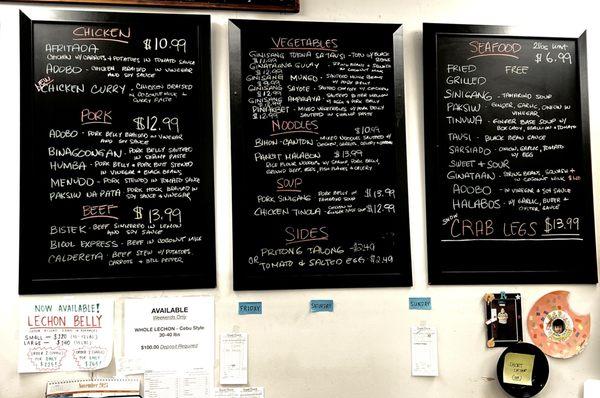 CHICKEN
AFRITADA $10.99
CHICKEN W/ CARROTS + POTATOES IN TOMATO SAUCE
ADOBO - CHICKEN BRAISED IN VINEGAR
AND SOY SAUCE
CHICKEN CURRY - CHICKEN BRAISED
IN COCONUT MILK +
CURRY PASTE
PORK
$12.99
ADOBO - PORK BELLY BRAISED IN VINEGAR
AND SOY SAUCE
BINAGOONGAN - PORK BELLY SAUTEED
IN SHRIMP PASTE
HUMBA - PORK BELLY + PORK BUTT STEWED
IN VINEGAR + BLACK BEANS
MENUDO - PORK STEWED IN TOMATO SAUCE
PAKSIW NA PATA - PORK HOCK BRAISED IN
SOY SAUCE + VINEGAR
BEEF
$13.99
BISTEK - BEEF SIMMERED IN LEMON
AND SOY SAUCE
BICOL EXPRESS - BEEF IN COCONUT MILK
CALDERETA - BEEF STEW W/ POTATOES,
CARROTS + BELL PEPPER
VEGETABLES
GINISANG TOKWA SA TAUSI - TOFU W/ BLACK
BEANS
$11.99
GINATAANG GULAY
$12.99
GINISANG MUNGO - SAUTEED MUNG BEANS
GINISANG SAYOTE - SAUTEED CHAYOTE W/ CHICKEN
$12.99
GINISANG AMPALAYA
W/ EGG + PORK BELLY
PINAKBET - MIXED VEGETABLES W/ PORK BELLY
$12.99 SAUTEED IN SHRIMP PASTE
NOODLES
$10.99
BIHON-CANTON - MIXED NOODLES SAUTEED W/
PANCIT MALABON $13.99
RICE FLOUR NOODLES W/ SHRIMP, PORK BELLY,
GROUND BEEF, EGG, FISH FLAKES + CELERY
SOUP
PORK SINIGANG - PORK BELLY IN $13.99
CHICKEN TINOLA - CHICKEN IN $12.99
SIDES
PRITONG TALONG - $3.49
OR TOMATO & SALTED EGG - $2.49
SEAFOOD
$6.99
FRIED FREE
GRILLED
SINIGANG - TAMARIND SOUP
PAKSIW - GINGER, GARLIC, ONION IN
VINEGAR
TINUWA - GINGER BASE SOUP W/
BOK CHOY, ONION + TOMATO
TAUSI - BLACK BEAN SAUCE
SARSIADO - ONION, GARLIC, TOMATO
W/ EGG
SWEET + SOUR
GINATAAN - STRING BEANS, SQUASH +
IN COCONUT MILK
ADOBO - IN VINEGAR + SOY SAUCE
HALABOS - W/ GARLIC, BUTTER +
OYSTER SAUCE
SNOW
CRAB LEGS $13.99
FRIDAY
SATURDAY
SUNDAY
NOW AVAILABLE!
LECHON BELLY
AVAILABLE
Weekends Only
WHOLE LECHON - Cebu Style
30-40 lbs
$100.00 Deposit Required